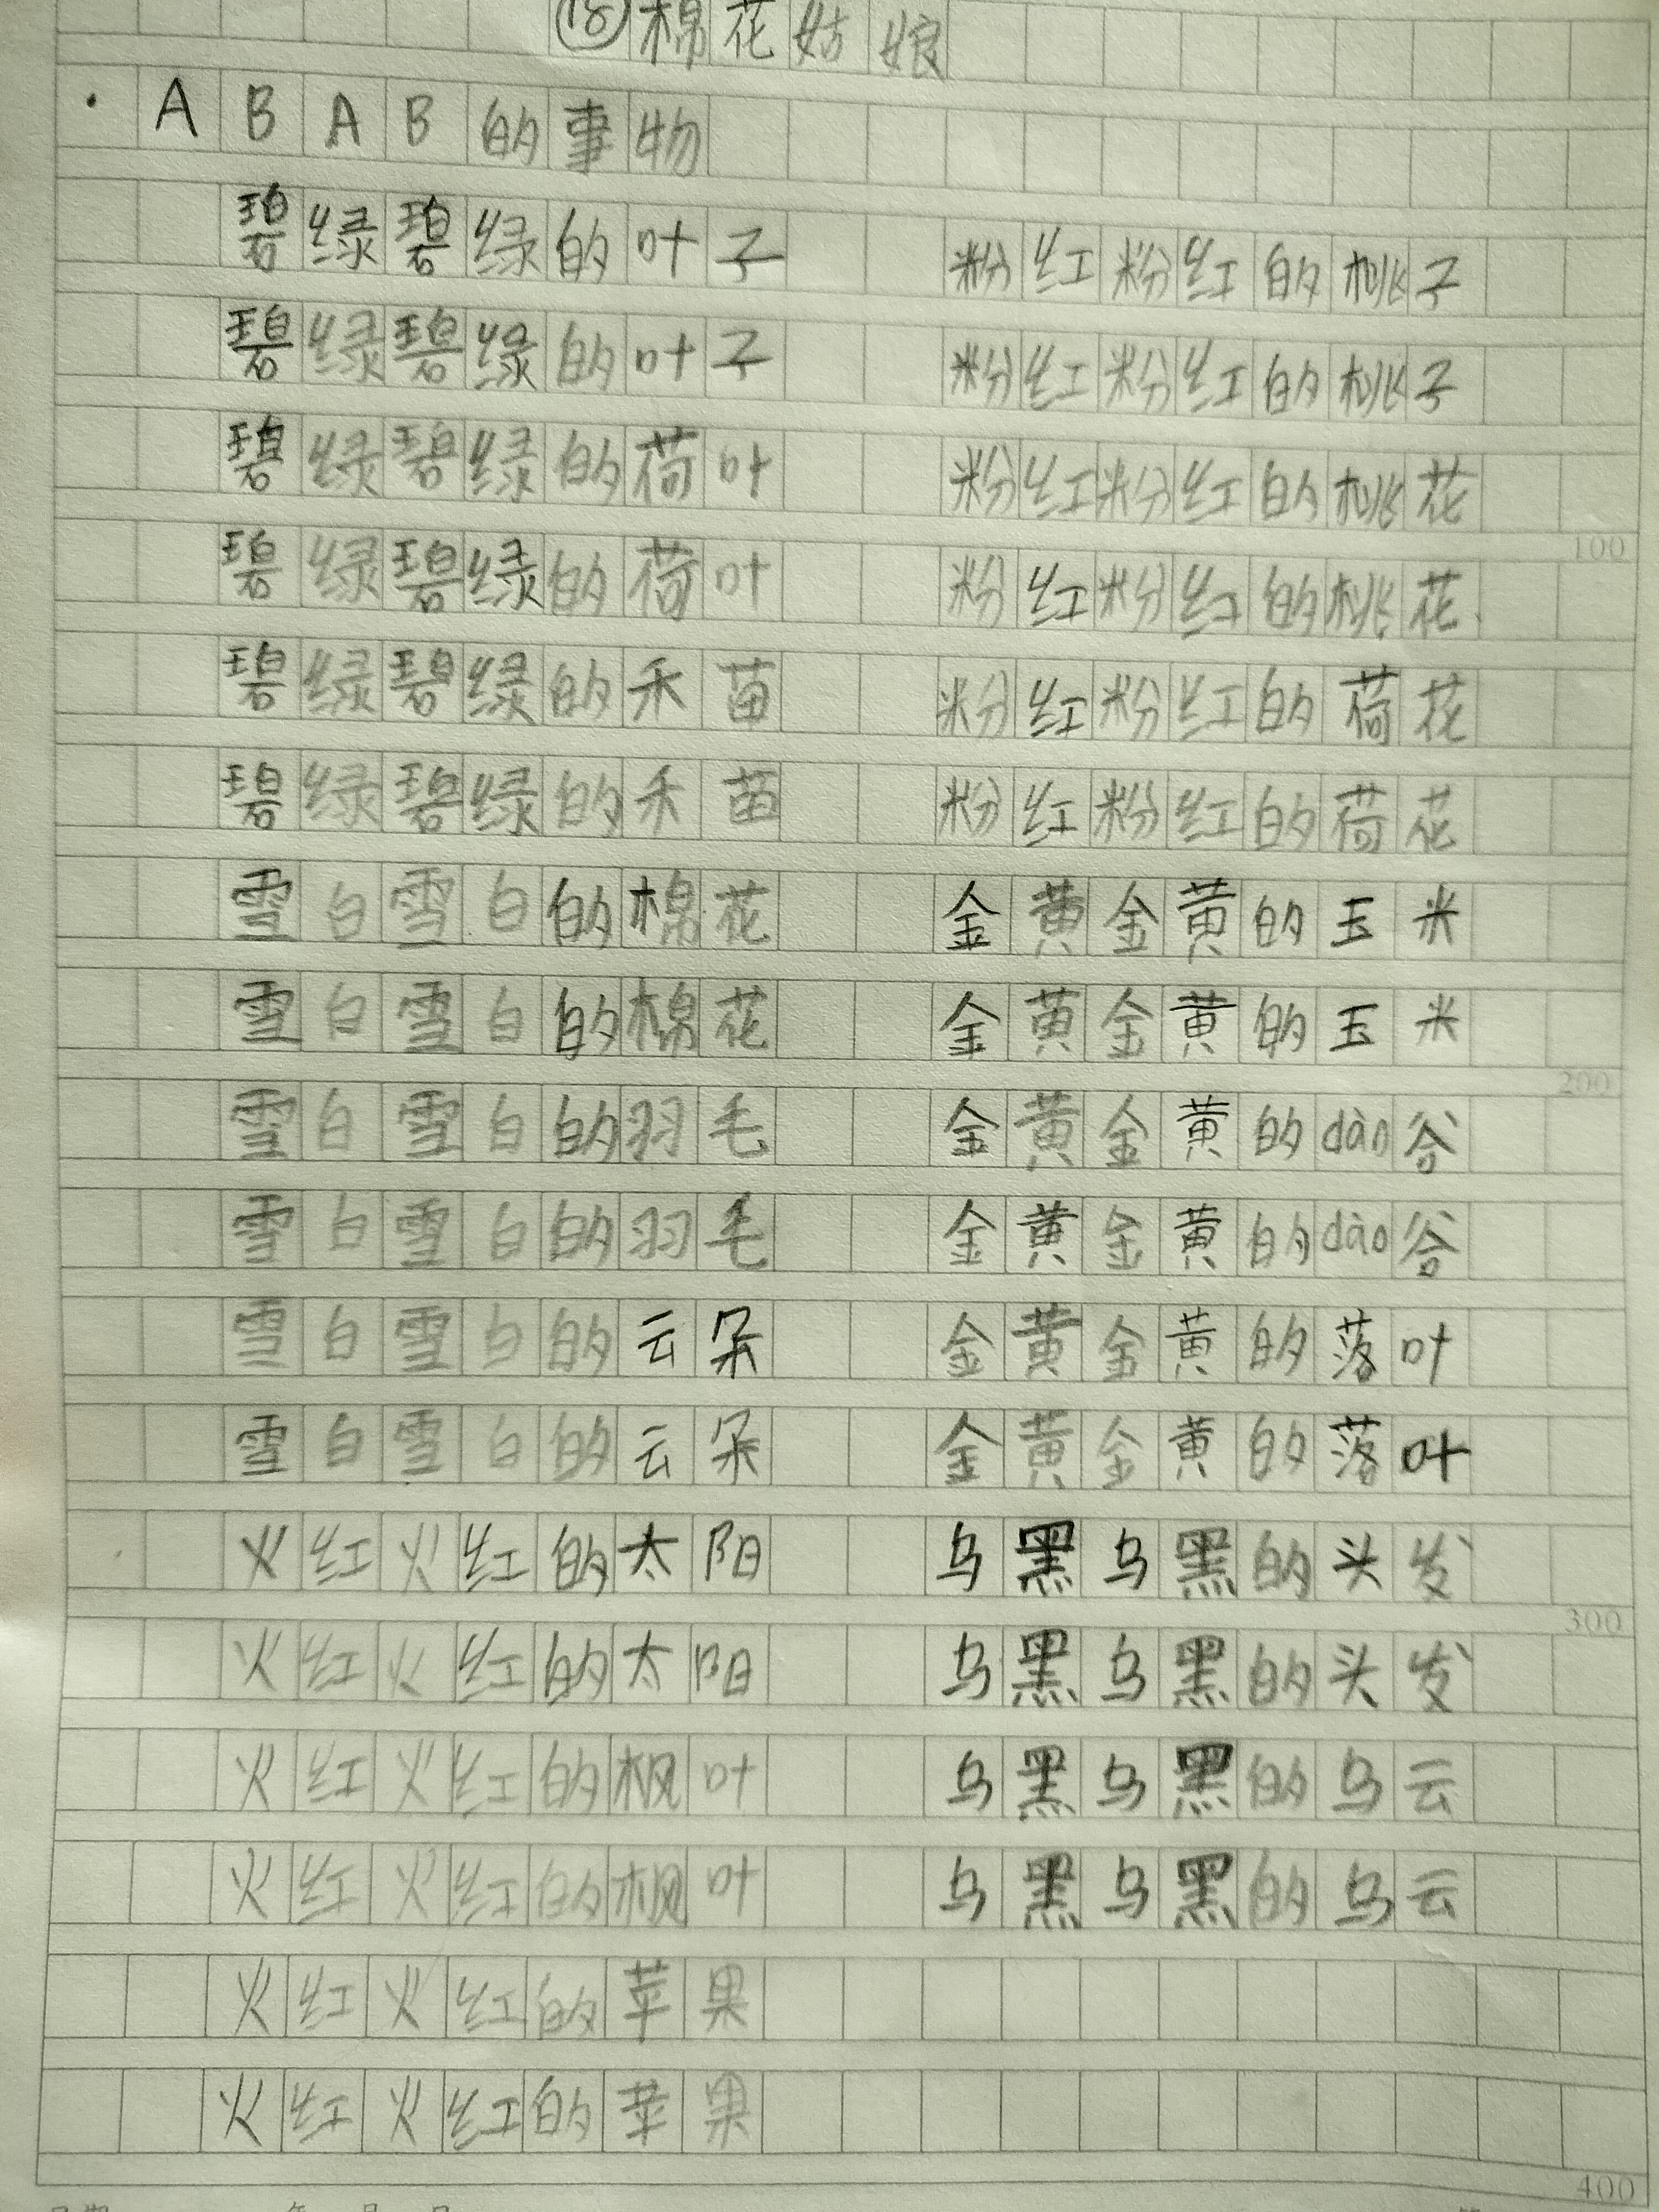 ⑱棉花姑娘
·ABAB的事物
碧绿碧绿的叶子 粉红粉红的桃子
碧绿碧绿的叶子 粉红粉红的桃子
碧绿碧绿的荷叶 粉红粉红的桃花
100
碧绿碧绿的荷叶 粉红粉红的桃花
碧绿碧绿的禾苗 粉红粉红的荷花
碧绿碧绿的禾苗 粉红粉红的荷花
雪白雪白的棉花 金黄金黄的玉米
雪白雪白的棉花 金黄金黄的玉米
200
雪白雪白的羽毛 金黄金黄的dào谷
雪白雪白的羽毛 金黄金黄的dào谷
雪白雪白的云朵 金黄金黄的落叶
雪白雪白的云朵 金黄金黄的落叶
火红火红的太阳 乌黑乌黑的头发
300
火红火红的太阳 乌黑乌黑的头发
火红火红的枫叶 乌黑乌黑的乌云
火红火红的枫叶 乌黑乌黑的乌云
火红火红的苹果
火红火红的苹果
400